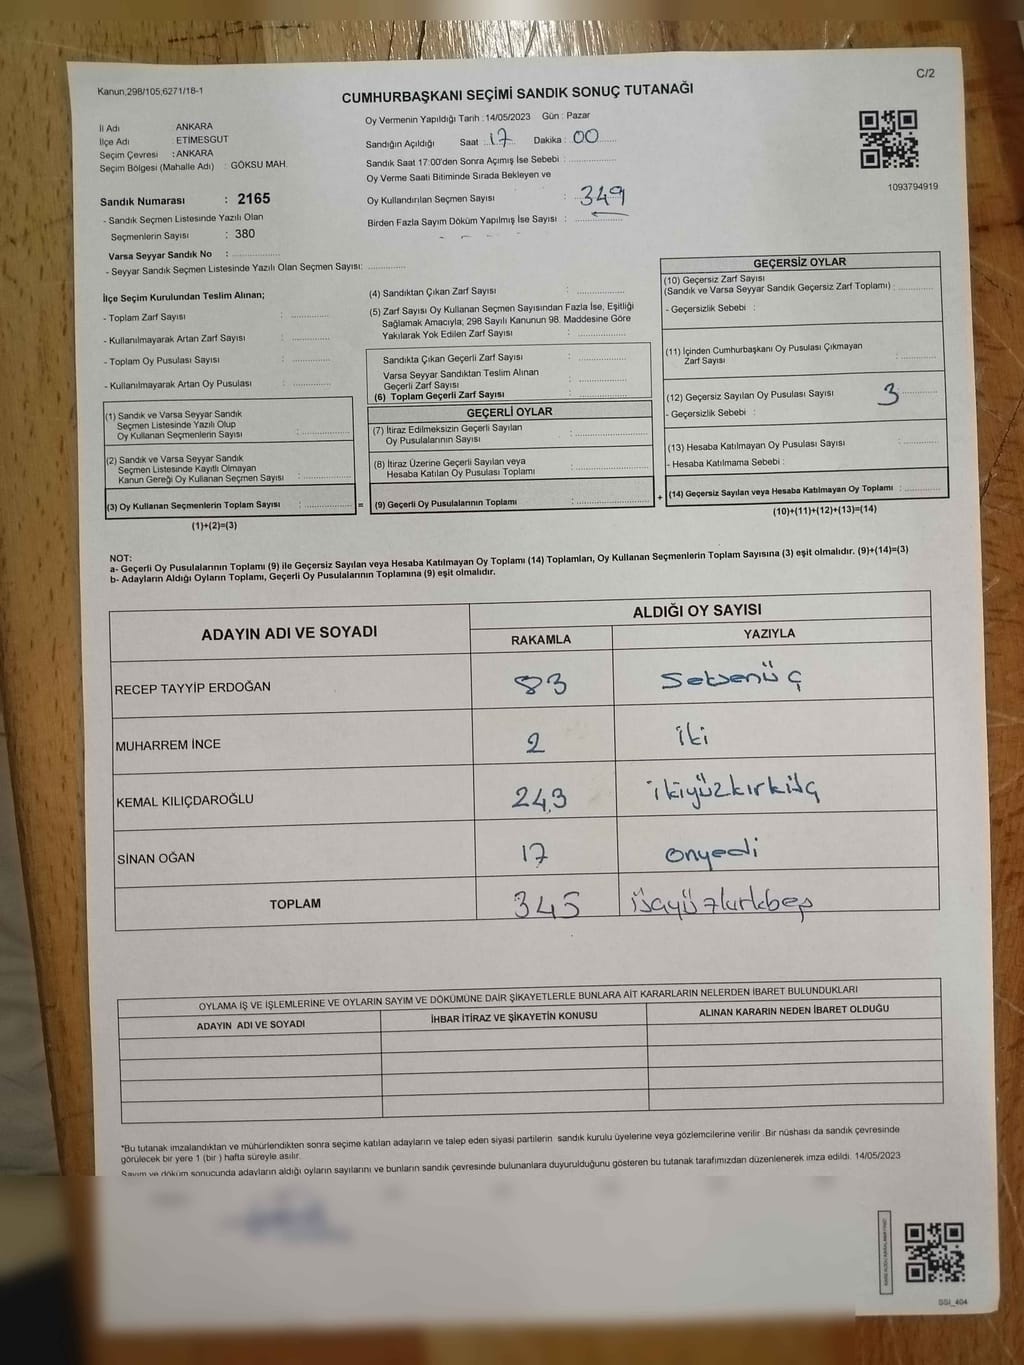 Kanun,298/105,6271/18-1
C/2
CUMHURBAŞKANI SEÇİMİ SANDIK SONUÇ TUTANAĞI
İl Adı : ANKARA
İlçe Adı : ETİMESGUT
Seçim Çevresi : ANKARA
Seçim Bölgesi (Mahalle Adı) : GÖKSU MAH.
Oy Vermenin Yapıldığı Tarih : 14/05/2023 Gün : Pazar
Sandığın Açıldığı Saat : 17 Dakika : 00
Sandık Saat 17:00'den Sonra Açımış İse Sebebi :
Oy Verme Saati Bitiminde Sırada Bekleyen ve
Oy Kullandırılan Seçmen Sayısı : 349
Birden Fazla Sayım Döküm Yapılmış İse Sayısı :
1093794919
Sandık Numarası : 2165
- Sandık Seçmen Listesinde Yazılı Olan
Seçmenlerin Sayısı : 380
Varsa Seyyar Sandık No :
- Seyyar Sandık Seçmen Listesinde Yazılı Olan Seçmen Sayısı:
İlçe Seçim Kurulundan Teslim Alınan;
- Toplam Zarf Sayısı :
- Kullanılmayarak Artan Zarf Sayısı :
- Toplam Oy Pusulası Sayısı :
- Kullanılmayarak Artan Oy Pusulası :
(1) Sandık ve Varsa Seyyar Sandık
Seçmen Listesinde Yazılı Olup
Oy Kullanan Seçmenlerin Sayısı :
(2) Sandık ve Varsa Seyyar Sandık
Seçmen Listesinde Kayıtlı Olmayan
Kanun Gereği Oy Kullanan Seçmen Sayısı :
(3) Oy Kullanan Seçmenlerin Toplam Sayısı : =
(1)+(2)=(3)
(4) Sandıktan Çıkan Zarf Sayısı :
(5) Zarf Sayısı Oy Kullanan Seçmen Sayısından Fazla İse, Eşitliği
Sağlamak Amacıyla; 298 Sayılı Kanunun 98. Maddesine Göre
Yakılarak Yok Edilen Zarf Sayısı :
Sandıkta Çıkan Geçerli Zarf Sayısı :
Varsa Seyyar Sandıktan Teslim Alınan
Geçerli Zarf Sayısı :
(6) Toplam Geçerli Zarf Sayısı :
GEÇERLİ OYLAR
(7) İtiraz Edilmeksizin Geçerli Sayılan
Oy Pusulalarının Sayısı :
(8) İtiraz Üzerine Geçerli Sayılan veya
Hesaba Katılan Oy Pusulası Toplamı :
(9) Geçerli Oy Pusulalarının Toplamı : +
GEÇERSİZ OYLAR
(10) Geçersiz Zarf Sayısı
(Sandık ve Varsa Seyyar Sandık Geçersiz Zarf Toplamı) :
- Geçersizlik Sebebi :
(11) İçinden Cumhurbaşkanı Oy Pusulası Çıkmayan
Zarf Sayısı :
(12) Geçersiz Sayılan Oy Pusulası Sayısı : 3
- Geçersizlik Sebebi :
(13) Hesaba Katılmayan Oy Pusulası Sayısı :
- Hesaba Katılmama Sebebi :
(14) Geçersiz Sayılan veya Hesaba Katılmayan Oy Toplamı :
(10)+(11)+(12)+(13)=(14)
NOT:
a- Geçerli Oy Pusulalarının Toplamı (9) ile Geçersiz Sayılan veya Hesaba Katılmayan Oy Toplamı (14) Toplamları, Oy Kullanan Seçmenlerin Toplam Sayısına (3) eşit olmalıdır. (9)+(14)=(3)
b- Adayların Aldığı Oyların Toplamı, Geçerli Oy Pusulalarının Toplamına (9) eşit olmalıdır.
ADAYIN ADI VE SOYADI
ALDIĞI OY SAYISI
RAKAMLA YAZIYLA
RECEP TAYYİP ERDOĞAN 83 Seksenüç
MUHARREM İNCE 2 iki
KEMAL KILIÇDAROĞLU 243 ikiyüzkırküç
SİNAN OĞAN 17 onyedi
TOPLAM 345 üçyüzkırkbeş
OYLAMA İŞ VE İŞLEMLERİNE VE OYLARIN SAYIM VE DÖKÜMÜNE DAİR ŞİKAYETLERLE BUNLARA AİT KARARLARIN NELERDEN İBARET BULUNDUKLARI
ADAYIN ADI VE SOYADI İHBAR İTİRAZ VE ŞİKAYETİN KONUSU ALINAN KARARIN NEDEN İBARET OLDUĞU
*Bu tutanak imzalandıktan ve mühürlendikten sonra seçime katılan adayların ve talep eden siyasi partilerin sandık kurulu üyelerine veya gözlemcilerine verilir .Bir nüshası da sandık çevresinde
görülecek bir yere 1 (bir ) hafta süreyle asılır.
Sayım ve döküm sonucunda adayların aldığı oyların sayılarını ve bunların sandık çevresinde bulunanlara duyurulduğunu gösteren bu tutanak tarafımızdan düzenlenerek imza edildi. 14/05/2023
SSI_404